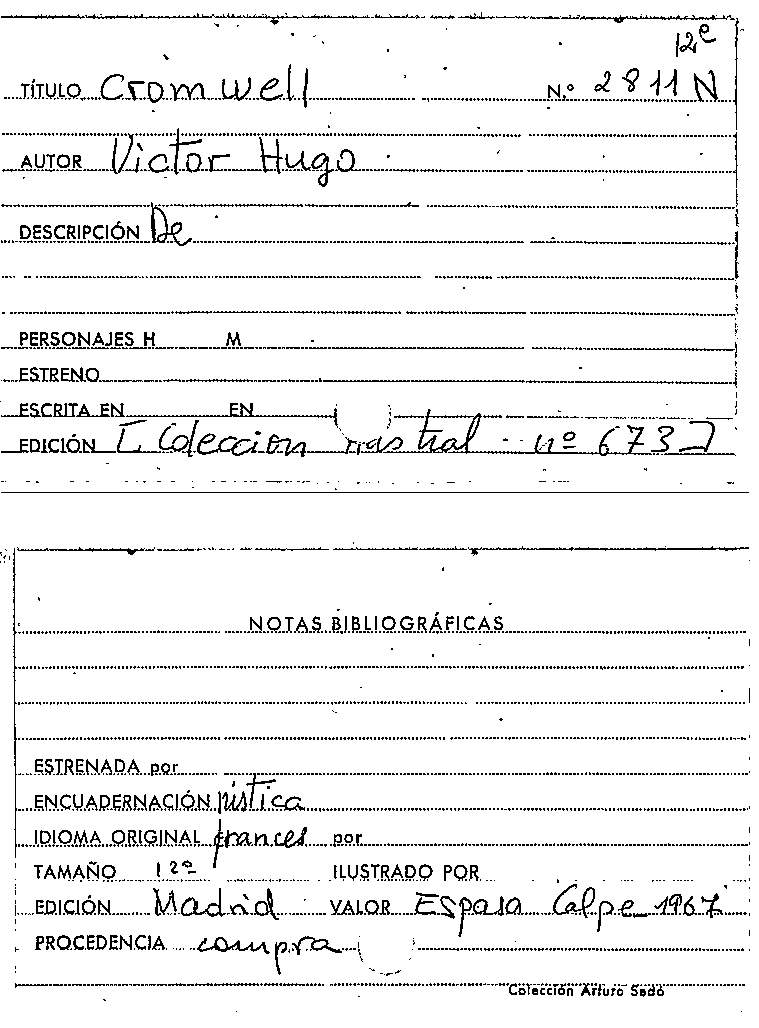 12e
TÍTULO Cromwell N.º 2811 N
AUTOR Victor Hugo
DESCRIPCIÓN De
PERSONAJES H M
ESTRENO
ESCRITA EN EN
EDICIÓN [Coleccion Austral - nº 673]
NOTAS BIBLIOGRÁFICAS
ESTRENADA por
ENCUADERNACIÓN rústica
IDIOMA ORIGINAL frances por
TAMAÑO 12º ILUSTRADO POR
EDICIÓN Madrid VALOR Espasa Calpe 1967
PROCEDENCIA compra
Colección Arturo Sedó